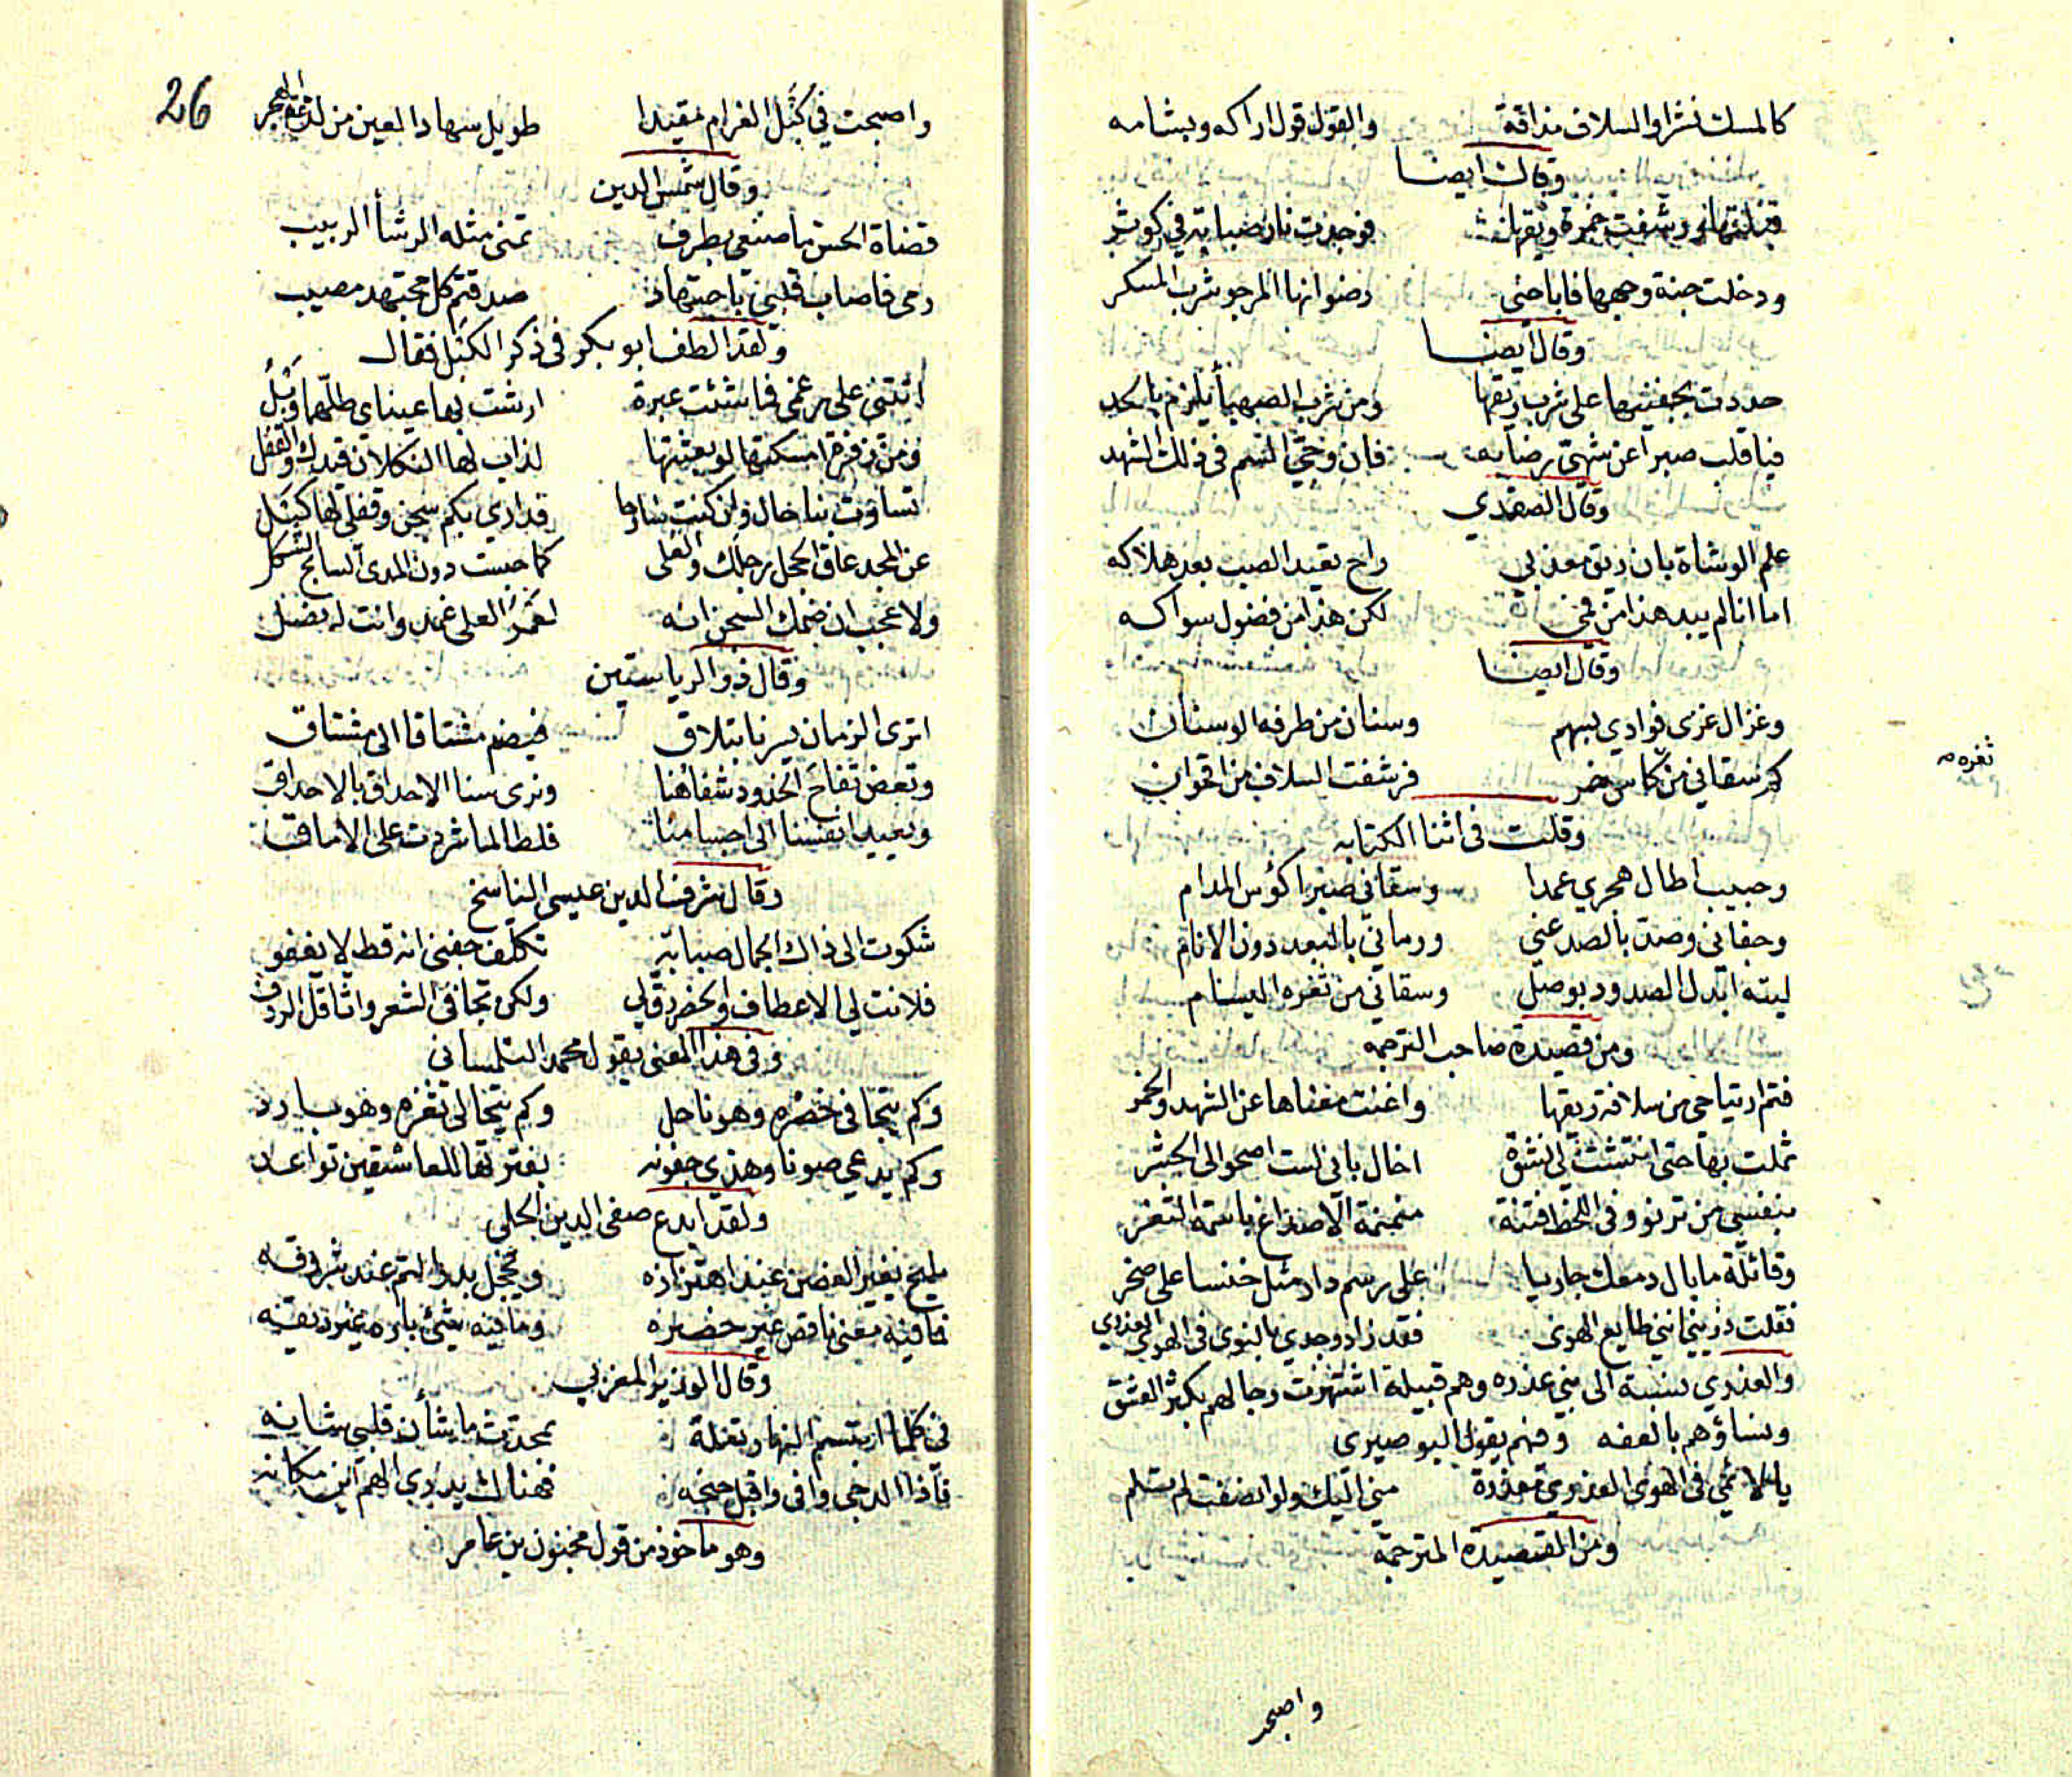 كالمسك نشرا والسلاف مذاقة والقول قول اراكه وبشامه
وقال ايضا
قبلتها ورشفت خمرة ريقها فوجدت نار صبابة في كوثر
ودخلت جنة وجهها فاباحني رضوانها المرجو شرب المسكر
وقال ايضا
حددت بجفنيها على شرب ريقها ومن شرب الصهباء يلزم بالحد
فيا قلب صبرا عن شهي رضابه فان وحي السم في ذلك الشهد
وقال الصفدي
علم الوشاة بان ريق معذبي راح تفيد الصب بعد هلاكه
اما انا لم يبد هذا من فمي لكن هذا من فضول سواكه
وقال ايضا
وغزال غزى فوادي بسهم وسنان من طرفه الوسنان
كم سقاني من كاس خمر فرشفت السلاف من اقحوان
ثغره
وقلت في اثنا الكتابه
وحبيب اطال هجري عمدا وسقاني صبرا كؤس المدام
وجفاني وصد بالصد عني ورماني بالبعد دون الانام
ليته ابدل الصدود بوصل وسقاني من ثغره البسام
ومن قصيدة صاحب الترجمه
فتم ارتياحي من سلافة ريقها واغنت مغناها عن الشهد والخمر
ثملت بها حتى انتشت لي نشوة اخال باني لست اصحو الى الحشر
بنفسي من ترنو وفي اللحظ فتنة منمنمة الاصداغ باسمة الثغر
وقائلة ما بال دمعك جاريا على رسم دار مثل خنسا على صخر
فقلت ذريني انني طايع الهوى فقد زاد وجدي بالنوى في الهوى العذري
والعذري نسبة الى بني عذره وهم قبيلة اشتهرت رجالهم بكثر العشق
ونساؤهم بالعفه وفهم يقول البوصيري
يا لائمي في الهوى العذري معذرة مني اليك ولو انصفت لم تلم
ومن القصيدة المترجمة
واصبحت
26
واصبحت في كبل الغرام مقيدا طويل سهاد العين من لذعة الهجر
وقال شمس الدين
قضاة الحسن ما صنعي بطرف تمنى مثله الرشأ الربيب
رمى فاصاب قلبي باجتهاد صدقتم كل مجتهد مصيب
ولقد الطف ابو بكر في ذكر الكبل فقال
اتتني على رغمي فما شئت عبرة ارشت بها عيناي طلهما وبل
ومن زفرة امسكتها لو بعثتها لذاب لها النكلان قيدك والقفل
تساوت بنا حال وان كنت سارحا فداري بكم سجن وقفلي لها كبل
عن المجد عاق الحجل رجلك والعلى كما حبست دون المدى السابح الشكل
ولا عجب ان ضمك السجن انه لعمر العلى غمد وانت له نصل
وقال ذو الرياستين
اترى الزمان يسرنا بتلاق فيضم مشتاقا الى مشتاق
وتعض تفاح الخدود شفاهنا ونرى سنا الاحداق بالاحداق
وتعيد انفسنا الى اجسامنا فلطالما شردت على الاماق
وقال شرف الدين عيسى الناسخ
شكوت الى ذاك الجمال صبابة تكلف جفني انه قط لا يغفو
فلانت لي الاعطاف والخصر رق لي ولكن تجافى الشعر واثاقل الردف
وفي هذا المعنى يقول محمد التلمساني
وكم يتجافى خصره وهو ناحل وكم يتحالى ثغره وهو بارد
وكم يدعي صونا وهذي جفونه بفترتها للعاشقين تواعد
ولقد ابدع صفي الدين الحلي
مليح يغير الغصن عند اهتزازه ويخجل بدر التم عند شروقه
فما فيه معنى ناقص غير خصره وما فيه شئ بارد غير ريقه
وقال الوزير المغربي
في كلما ابتسم النهار تعلة بمحدث ما شأن قلبي شانه
فاذا الدجى وافى واقبل جنحه فهناك يدري الهم اين مكانه
وهو ماخوذ من قول مجنون بن عامر